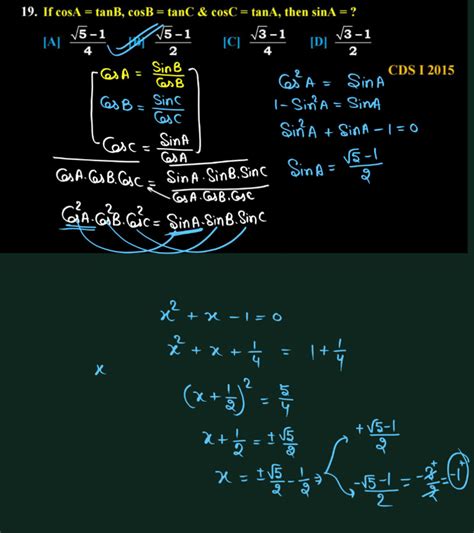 19. If cosA = tanB, cosB = tanC & cosC = tanA, then sinA = ?
[A] (√5-1)/4 [B] (√5-1)/2 [C] (√3-1)/4 [D] (√3-1)/2
CDS I 2015
CosA = SinB/CosB
CosB = SinC/CosC
CosC = SinA/CosA
CosA.CosB.CosC = SinA.SinB.SinC/CosA.CosB.CosC
Cos²A.Cos²B.Cos²C = SinA.SinB.SinC
Cos²A = SinA
1-Sin²A = SinA
Sin²A + SinA-1=0
SinA = (√5-1)/2
x² + x - 1 = 0
x² + x + 1/4 = 1 + 1/4
x
(x + 1/2)² = 5/4
x + 1/2 = ±√5/2
x = ±√5/2 - 1/2 ⇒
+√5-1/2
-√5-1/2 = -2⁺/2 = -1⁺